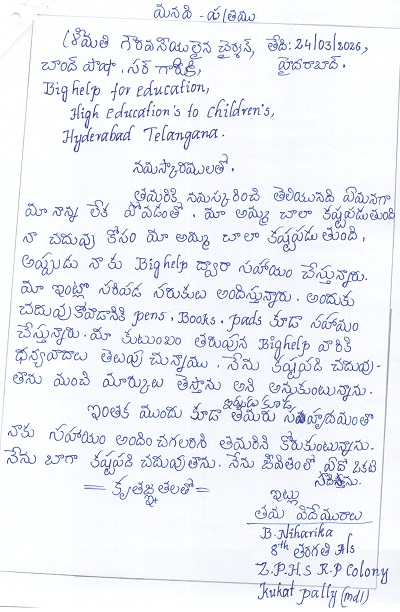 మనవి - పత్రము
శ్రీమతి గౌరవనీయులైన ఛైర్మన్, తేది: 24/03/2026,
చాంద్ పాషా, సర్ గారికి, హైదరాబాద్.
Bighelp for education,
High education's to children's,
Hyderabad Telangana.
నమస్కారములతో.
తమరికి నమస్కరించి తెలియునది ఏమనగా
మా నాన్న లేక పోవడంతో, మా అమ్మ చాలా కష్టపడుతుంది
నా చదువు కోసం మా అమ్మ చాలా కష్టపడుతుంది,
అప్పుడు నాకు Bighelp ద్వారా సహాయం చేస్తున్నారు.
మా ఇంట్లో సరిపడ సరుకులు అందిస్తున్నారు. అందుకు
చదువుకోవడానికి pens, Books, pads కూడ సహాయం
చేస్తున్నారు. మా కుటుంబం తరుపున Bighelp వారికి
ధన్యవాదాలు తెలుపు చున్నాము. నేను కష్టపడి చదువు-
తాను మంచి మార్కులు తెస్తాను అని అనుకుంటున్నాను.
ఇంతక ముందు కూడా ఇప్పుడు కూడ తమరు సహృదయంతో
నాకు సహాయం అందించగలరని తమరిని కోరుకుంటున్నాను.
నేను బాగా కష్టపడి చదువుతాను. నేను జీవితంలో ఏదో ఒకటి
సాధిస్తాను.
== కృతజ్ఞతలతో ==
ఇట్లు
తమ విదేయురాలు
B. Niharika
8th తరగతి A/s
Z.P.H.S R.P Colony
Kukat pally (mdl)